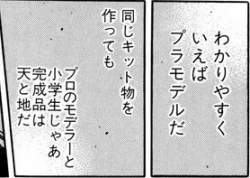 わかりやすく
いえば
プラモデルだ
同じキット物を
作っても
プロのモデラーと
小学生じゃあ
完成品は
天と地だ